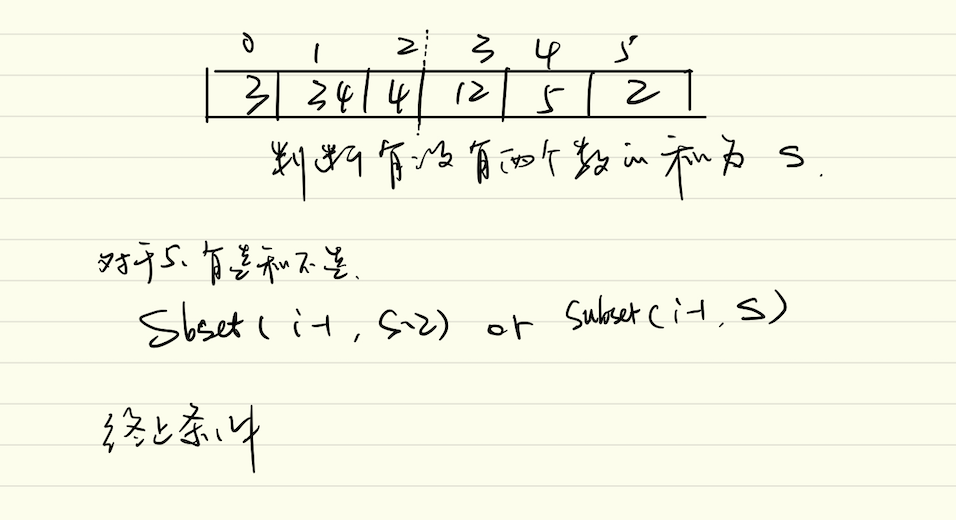 0 1 2 3 4 5
3 34 4 12 5 2
判断有没有两个数的和为 S.
对于5、有选和不选.
Sbset( i-1, S-2) or Subset( i-1, S)
终止条件